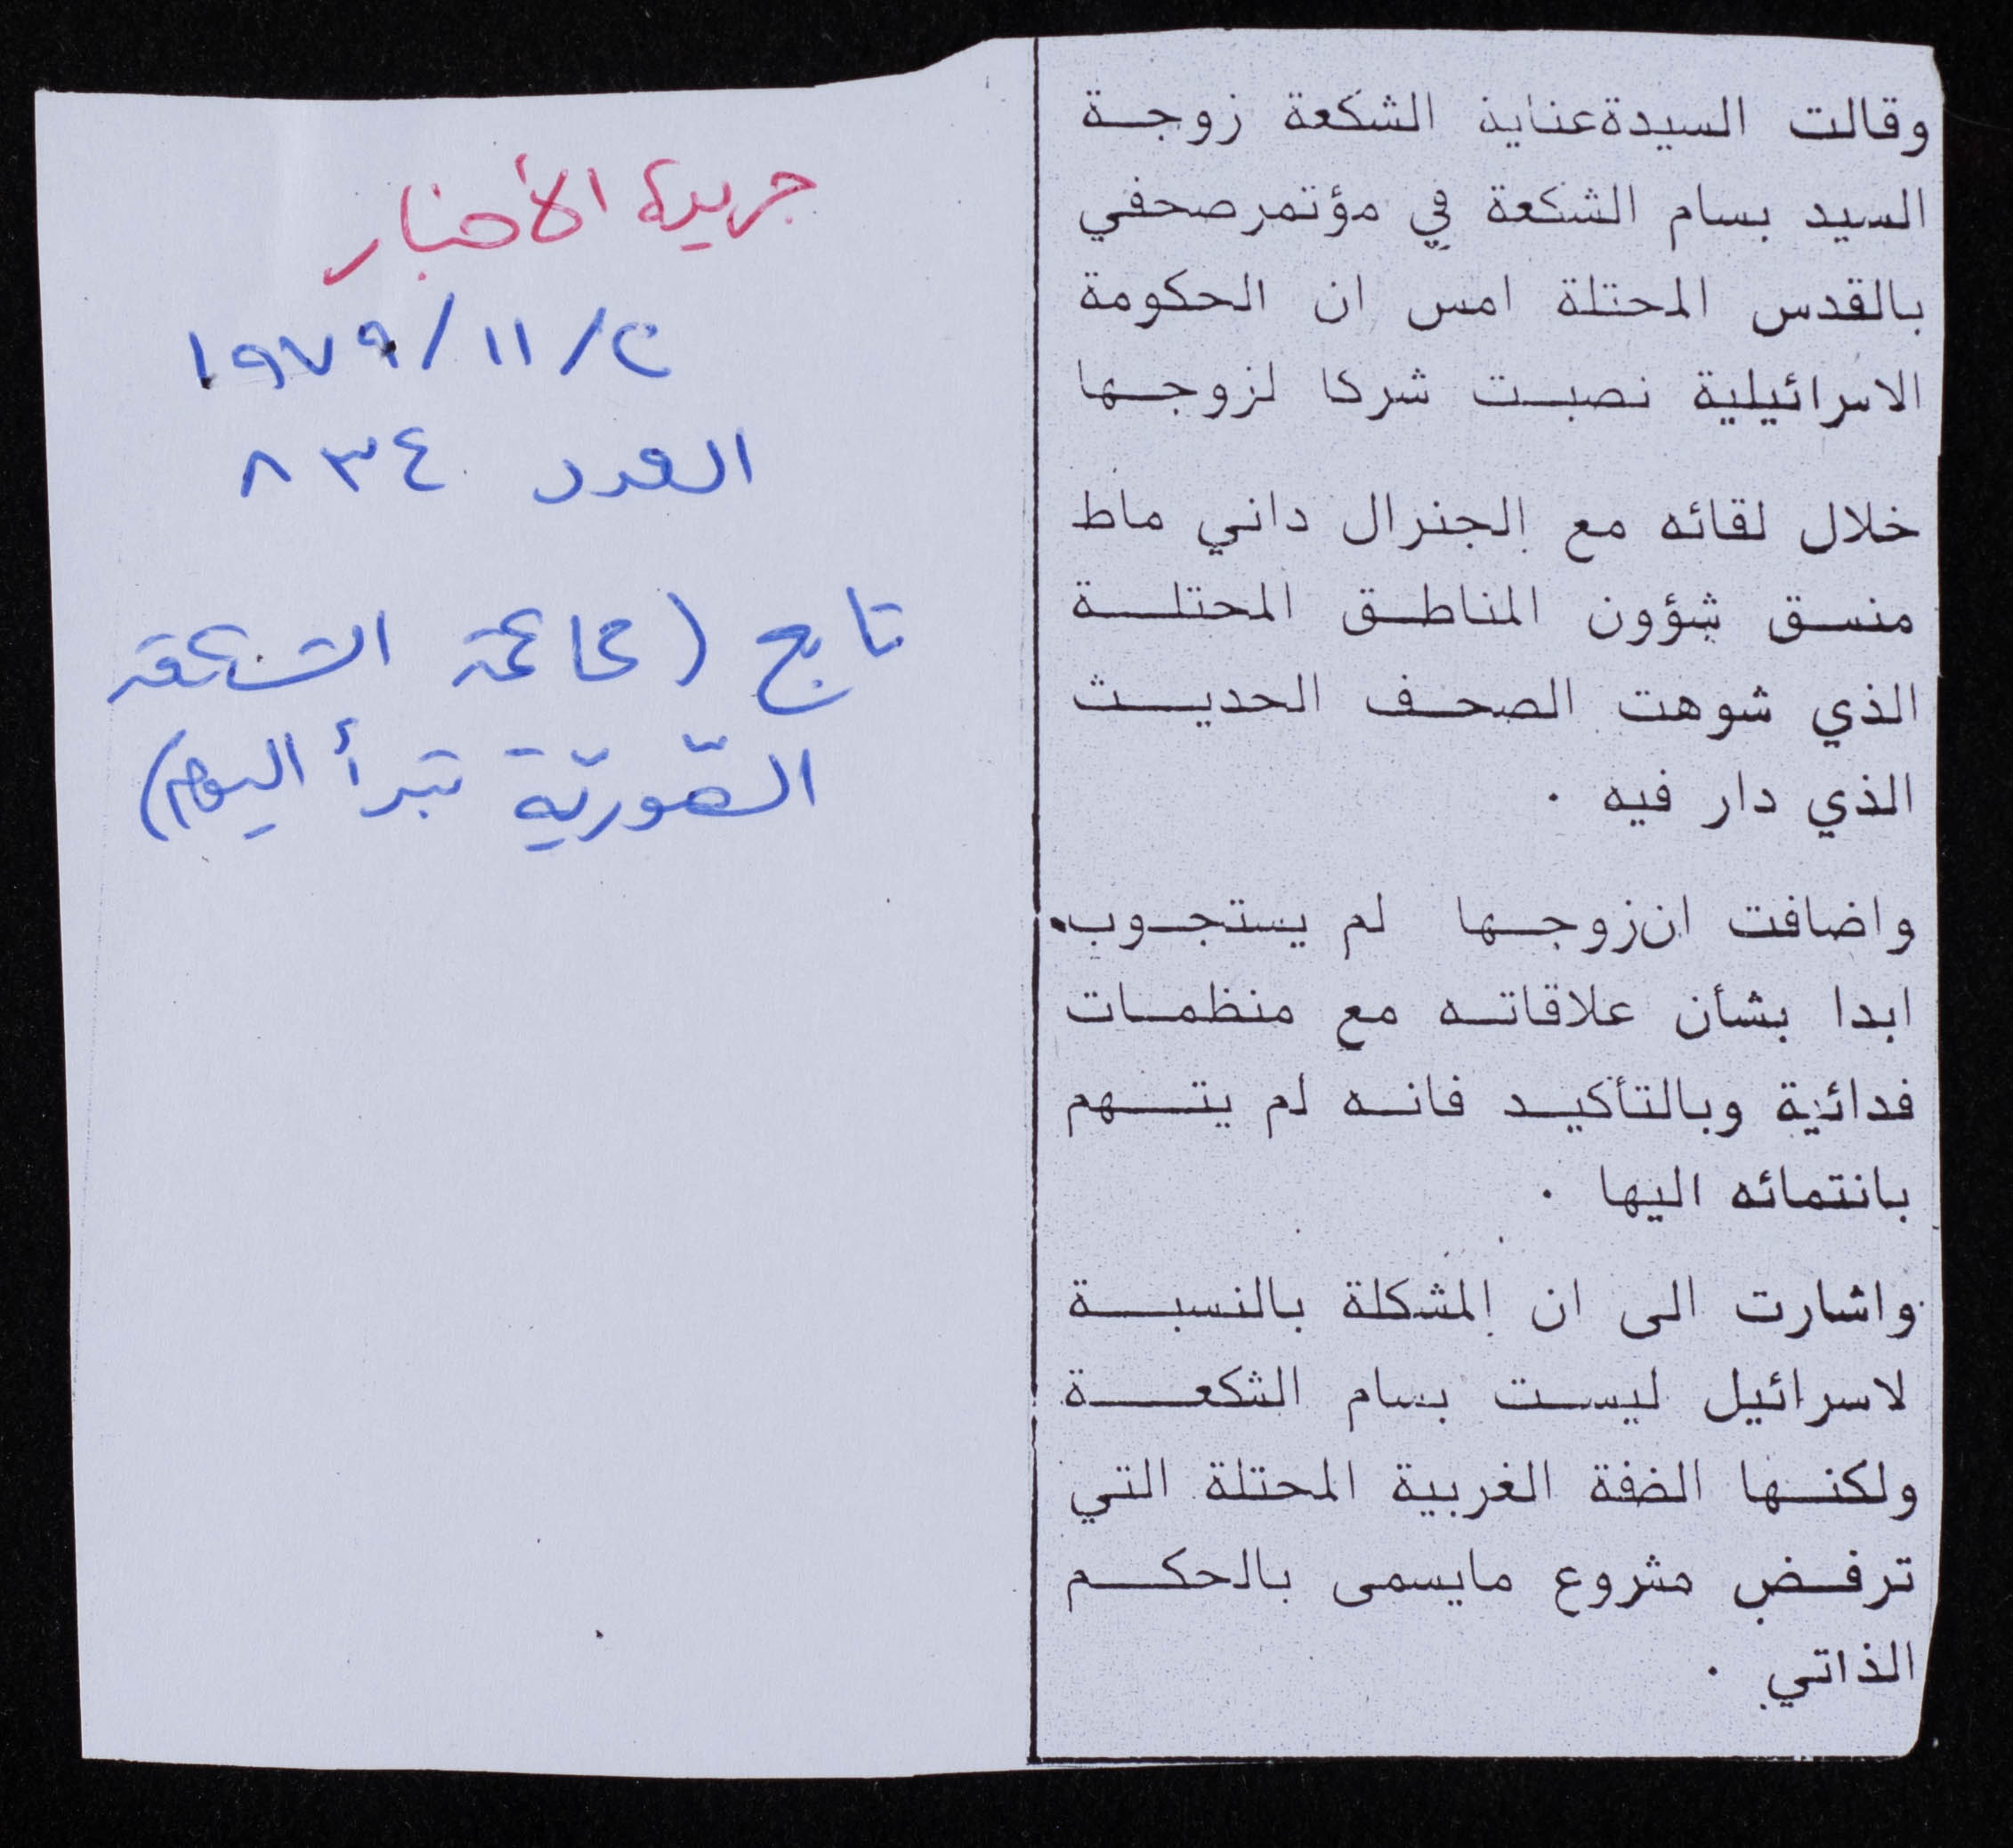 وقالت السيدة عناية الشكعة زوجة
السيد بسام الشكعة في مؤتمر صحفي
بالقدس المحتلة امس ان الحكومة
الاسرائيلية نصبت شركا لزوجها
خلال لقائه مع الجنرال داني ماط
منسق شؤون المناطق المحتلة
الذي شوهت الصحف الحديث
الذي دار فيه .
واضافت ان زوجها لم يستجوب
ابدا بشأن علاقاته مع منظمات
فدائية وبالتأكيد فانه لم يتهم
بانتمائه اليها .
واشارت الى ان المشكلة بالنسبة
لاسرائيل ليست بسام الشكعة
ولكنها الضفة الغربية المحتلة التي
ترفض مشروع مايسمى بالحكم
الذاتي .
جريدة الأخبار
٢/١١/١٩٧٩
العدد ٨٣٤
تابع (محاكمة الشكعة
الصّوريّة تبدأ اليوم)